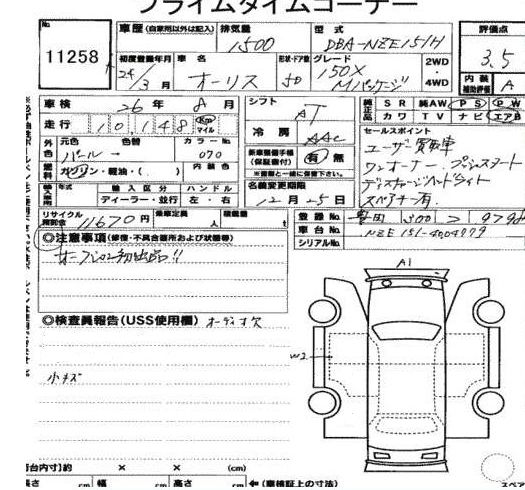 プライムタイムコーナー
No. 11258
車歴 (自家用以外は記入) 排気量 1500 型式 DBA-NZE151H 評価点 3.5
初度登録年月 24/3月 車名 オーリス 形状・ドア数 5D グレード 150X Mパッケージ 2WD・4WD 内装補助評価 A
車検 26年 8月 シフト AT 純正品 SR 純AW PS PW
走行 10,148 Km マイル 冷房 AAC カワ TV ナビ エアB
外色 元色 パール 色替 カラーNo. 070
セールスポイント
ユーザー買取車
ワンオーナー プッシュスタート
ディスチャージヘッドライト
スペアキー有
燃料 ガソリン・軽油・( ) 内装色
新車整備手帳(保証書付) 有 無
輸入車用 年式 輸入区分 ハンドル
ディーラー・並行 左・右
名義変更期限 12月25日
リサイクル預託金 11670円 乗車定員 人 積載量 t
登録No. 300 979
車台No. NZE151-4004979
シリアルNo.
◎注意事項(修復・不具合箇所および状態等)
オークション初出品!!
◎検査員報告(USS使用欄) オーディオ欠
小キズ
A1
W2
荷台内寸)約 × × (cm)
長さ cm 幅 cm 高さ cm ←(車検証上の寸法)
スペア